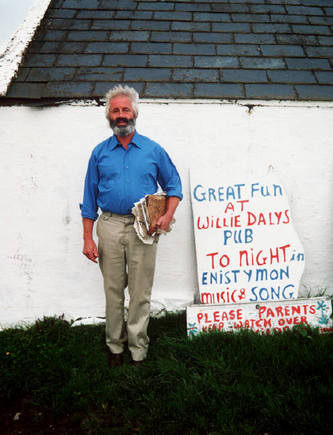 GREAT FUN
AT
WILLIE DALYS
PUB
TO NIGHT in
ENISTYMON
MUSIC & SONG
PLEASE PARENTS
KEEP WATCH OVER